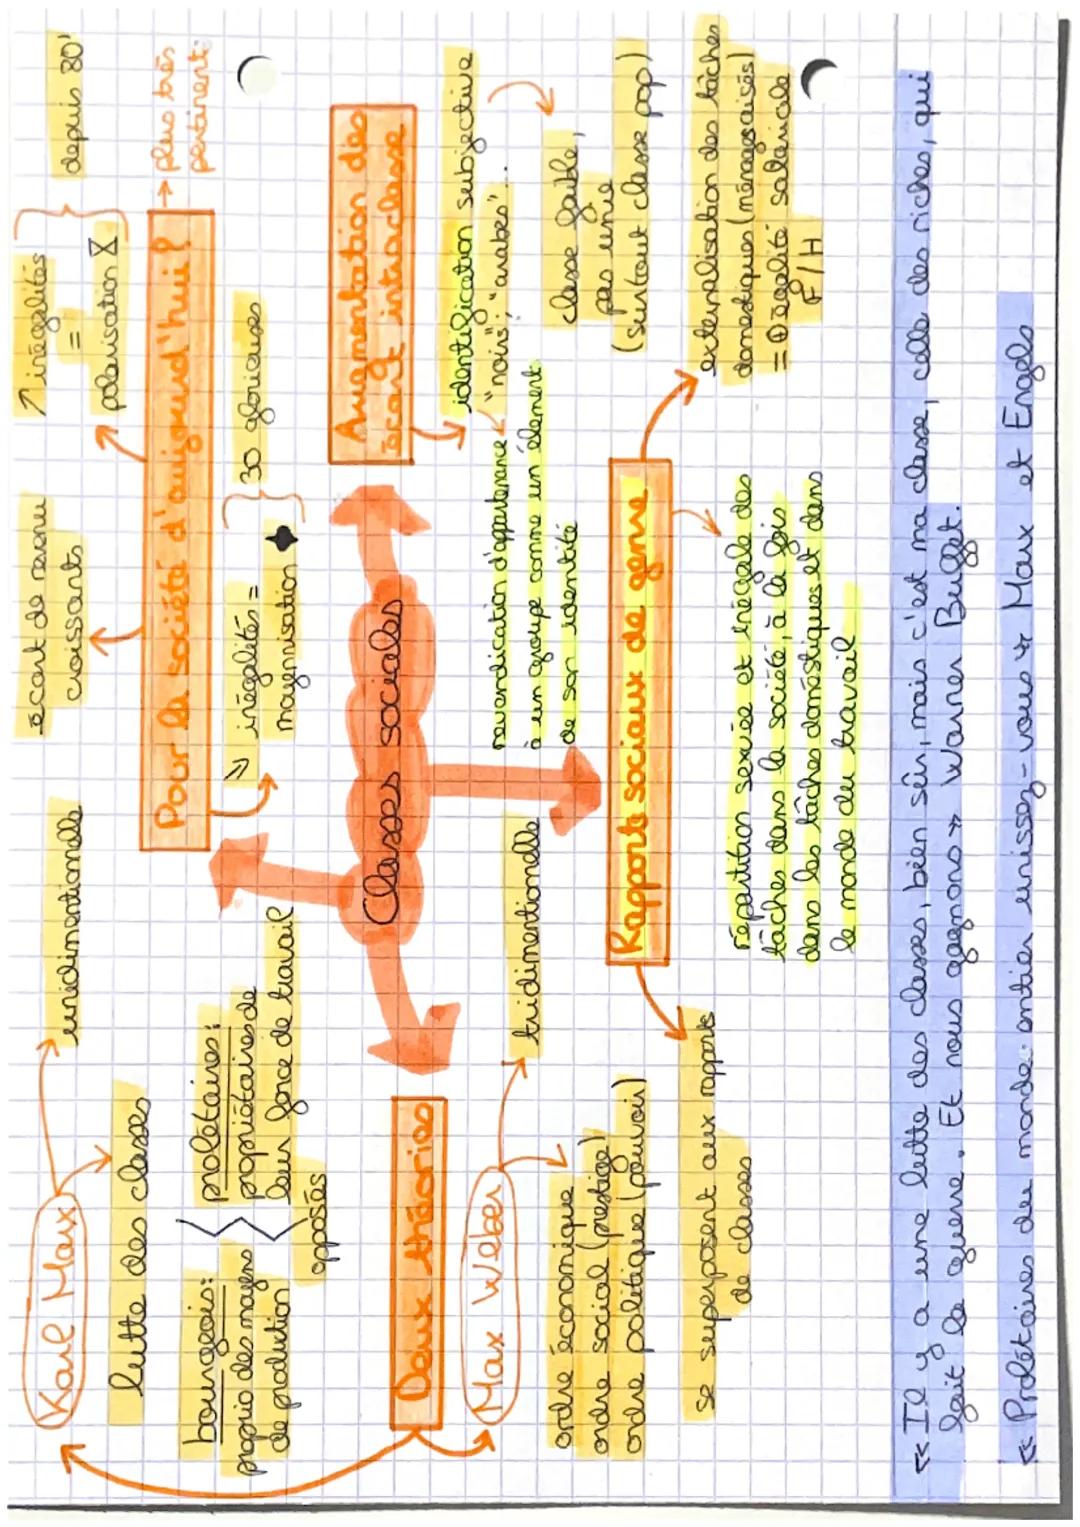 Karl Marx
unidimentionelle
lutte des classes
bourgeois:
proprio des moyens
de production
prolétaires:
popriétaires de
leur force de travail
opposés
Deux théories
Max Weber
tridimentionelle
ordre économique
ordre social (prestige)
ordre politique (pouvoir)
Classes sociales
écart de revenu
croissants
↗ inégalités
=
polarisation
depuis 80'
Pour la société d'aujourd'hui?
→ plus très
pertinent
↘ inégalités =
moyennisation
30 glorieuses
Augmentation des
écart intraclasse
identification subjective
"noirs"; "arabes"...
revendication d'appartenance
à un groupe comme un élément
de son identité
classe faible,
pas unie
(surtout classe pop)
Rapport sociaux de genre
se superposent aux rapports
de classes
répartition sexuée et inégale des
tâches dans la société, à la fois
dans les tâches domestiques et dans
le monde du travail
externalisation des tâches
domestiques (ménage aisés)
= égalité salariale
F/H
« Il y a une lutte des classes, bien sûr, mais c'est ma classe, celle des riches, qui
fait la guerre. Et nous gagnons » Warner Buffet.
« Prolétaires du monde entier unissez-vous » Marx et Engels